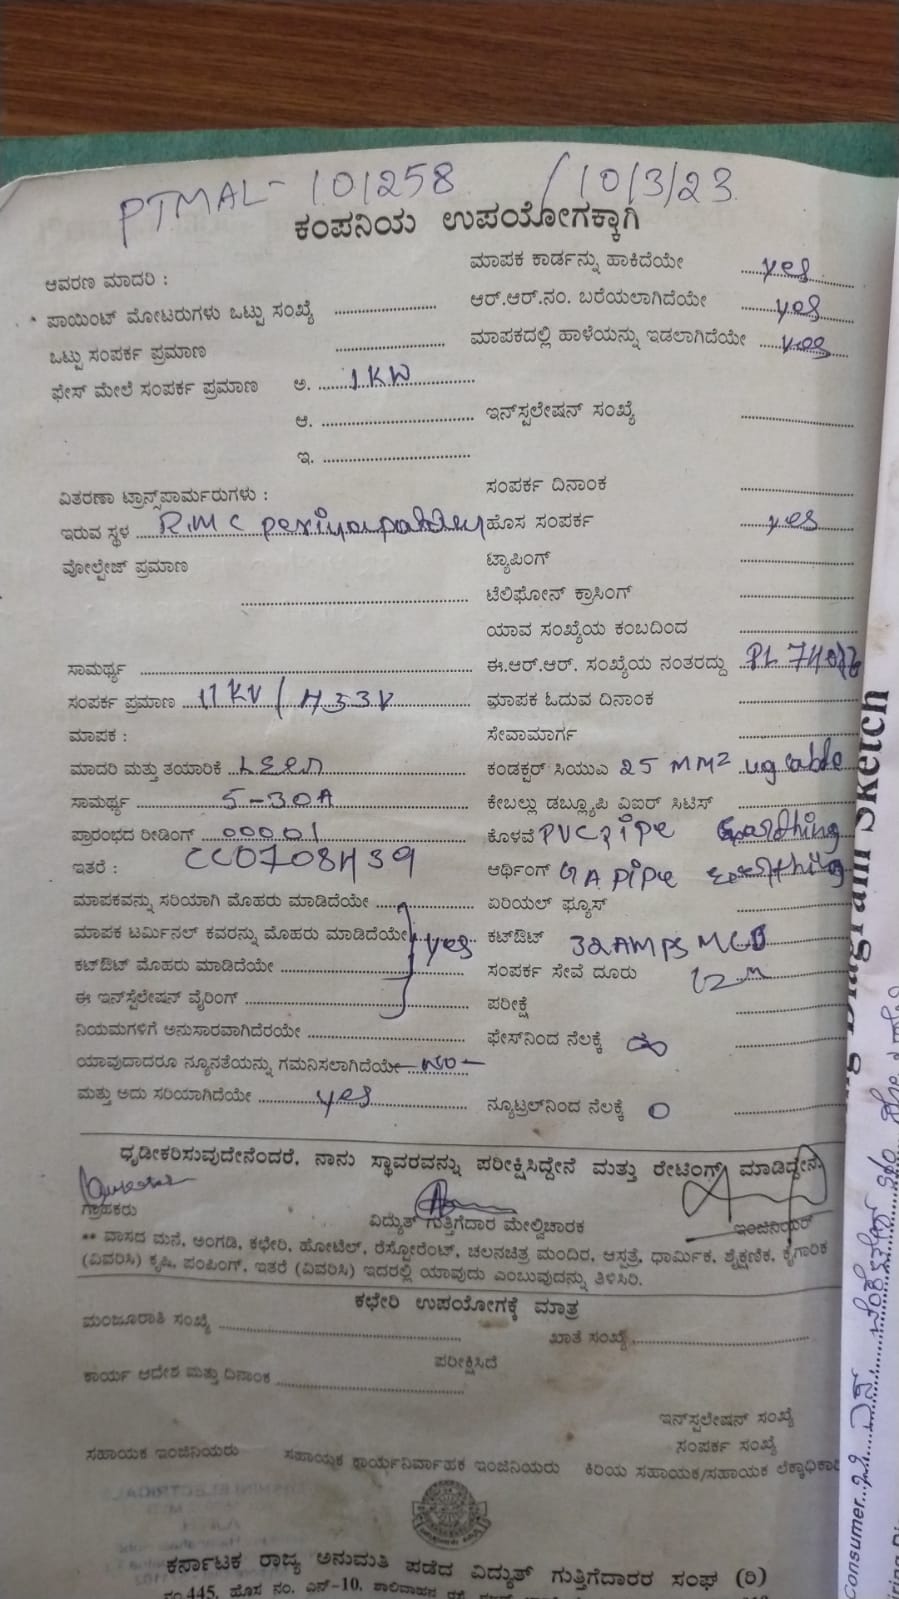 PTMAL- 101258 / 10/3/23
ಕಂಪನಿಯ ಉಪಯೋಗಕ್ಕಾಗಿ
ಆವರಣ ಮಾದರಿ :
ಮಾಪಕ ಕಾರ್ಡನ್ನು ಹಾಕಿದೆಯೇ yes
* ಪಾಯಿಂಟ್ ಮೋಟರುಗಳು ಒಟ್ಟು ಸಂಖ್ಯೆ
ಆರ್.ಆರ್.ನಂ. ಬರೆಯಲಾಗಿದೆಯೇ yes
ಒಟ್ಟು ಸಂಪರ್ಕ ಪ್ರಮಾಣ
ಮಾಪಕದಲ್ಲಿ ಹಾಳೆಯನ್ನು ಇಡಲಾಗಿದೆಯೇ yes
ಫೇಸ್ ಮೇಲೆ ಸಂಪರ್ಕ ಪ್ರಮಾಣ ಅ. 1 KW
ಆ.
ಇನ್‌ಸ್ಪಲೇಷನ್ ಸಂಖ್ಯೆ
ಇ.
ವಿತರಣಾ ಟ್ರಾನ್ಸ್‌ಪಾರ್ಮರುಗಳು :
ಸಂಪರ್ಕ ದಿನಾಂಕ
ಇರುವ ಸ್ಥಳ R.M.C
ಹೊಸ ಸಂಪರ್ಕ yes
ವೋಲ್ಟೇಜ್ ಪ್ರಮಾಣ
ಟ್ಯಾಪಿಂಗ್
ಟೆಲಿಫೋನ್ ಕ್ರಾಸಿಂಗ್
ಯಾವ ಸಂಖ್ಯೆಯ ಕಂಬದಿಂದ
ಸಾಮರ್ಥ್ಯ
ಈ.ಆರ್.ಆರ್. ಸಂಖ್ಯೆಯ ನಂತರದ್ದು
ಸಂಪರ್ಕ ಪ್ರಮಾಣ 11 KV / 433V
ಮಾಪಕ ಓದುವ ದಿನಾಂಕ
ಮಾಪಕ :
ಸೇವಾಮಾರ್ಗ
ಮಾದರಿ ಮತ್ತು ತಯಾರಿಕೆ
ಕಂಡಕ್ಟರ್ ಸಿಯುಎ 25 MM2 ug cable
ಸಾಮರ್ಥ್ಯ 5-30A
ಕೇಬಲ್ಲು ಡಬ್ಲ್ಯೂಪಿ ವಿಐರ್ ಸಿಟಿಸ್
ಪ್ರಾರಂಭದ ರೀಡಿಂಗ್ 00001
ಕೊಳವೆ PVC pipe
ಇತರೆ : CC0708439
ಆರ್ಥಿಂಗ್ GA pipe
ಮಾಪಕವನ್ನು ಸರಿಯಾಗಿ ಮೊಹರು ಮಾಡಿದೆಯೇ
ಏರಿಯಲ್ ಫ್ಯೂಸ್
ಮಾಪಕ ಟರ್ಮಿನಲ್ ಕವರನ್ನು ಮೊಹರು ಮಾಡಿದೆಯೇ yes
ಕಟ್‌ಔಟ್ 32 AMPS MCB
ಕಟ್‌ಔಟ್ ಮೊಹರು ಮಾಡಿದೆಯೇ
ಸಂಪರ್ಕ ಸೇವೆ ದೂರು 12 m
ಈ ಇನ್‌ಸ್ಟೆಲೇಷನ್ ವೈರಿಂಗ್
ಪರೀಕ್ಷೆ
ನಿಯಮಗಳಿಗೆ ಅನುಸಾರವಾಗಿದೆರಯೇ
ಫೇಸ್‌ನಿಂದ ನೆಲಕ್ಕೆ ∞
ಯಾವುದಾದರೂ ನ್ಯೂನತೆಯನ್ನು ಗಮನಿಸಲಾಗಿದೆಯೇ - NO -
ಮತ್ತು ಅದು ಸರಿಯಾಗಿದೆಯೇ yes
ನ್ಯೂಟ್ರಲ್‌ನಿಂದ ನೆಲಕ್ಕೆ 0
ಧೃಡೀಕರಿಸುವುದೇನೆಂದರೆ, ನಾನು ಸ್ಥಾವರವನ್ನು ಪರೀಕ್ಷಿಸಿದ್ದೇನೆ ಮತ್ತು ರೇಟಿಂಗ್ಸ್ ಮಾಡಿದ್ದೇನೆ.
ಗ್ರಾಹಕರು ವಿದ್ಯುತ್ ಗುತ್ತಿಗೆದಾರ ಮೇಲ್ವಿಚಾರಕ ಇಂಜಿನಿಯರ್
** ವಾಸದ ಮನೆ, ಅಂಗಡಿ, ಕಛೇರಿ, ಹೋಟೆಲ್, ರೆಸ್ಟೋರೆಂಟ್, ಚಲನಚಿತ್ರ ಮಂದಿರ, ಆಸ್ಪತ್ರೆ, ಧಾರ್ಮಿಕ, ಶೈಕ್ಷಣಿಕ, ಕೈಗಾರಿಕ
(ವಿವರಿಸಿ) ಕೃಷಿ, ಪಂಪಿಂಗ್, ಇತರೆ (ವಿವರಿಸಿ) ಇದರಲ್ಲಿ ಯಾವುದು ಎಂಬುವುದನ್ನು ತಿಳಿಸಿರಿ.
ಕಛೇರಿ ಉಪಯೋಗಕ್ಕೆ ಮಾತ್ರ
ಮಂಜೂರಾತಿ ಸಂಖ್ಯೆ
ಖಾತೆ ಸಂಖ್ಯೆ
ಪರೀಕ್ಷಿಸಿದೆ
ಕಾರ್ಯ ಆದೇಶ ಮತ್ತು ದಿನಾಂಕ
ಇನ್‌ಸ್ಪಲೇಷನ್ ಸಂಖ್ಯೆ
ಸಂಪರ್ಕ ಸಂಖ್ಯೆ
ಸಹಾಯಕ ಇಂಜಿನಿಯರು ಸಹಾಯಕ ಕಾರ್ಯನಿರ್ವಾಹಕ ಇಂಜಿನಿಯರು ಕಿರಿಯ ಸಹಾಯಕ/ಸಹಾಯಕ
ಕರ್ನಾಟಕ ರಾಜ್ಯ ಅನುಮತಿ ಪಡೆದ ವಿದ್ಯುತ್ ಗುತ್ತಿಗೆದಾರರ ಸಂಘ (ರಿ)
ನಂ.445, ಹೊಸ ನಂ. ಎನ್-10, ಶಾಲಿವಾಹನ ರಸ್ತೆ
Diagram Sketch
consumer